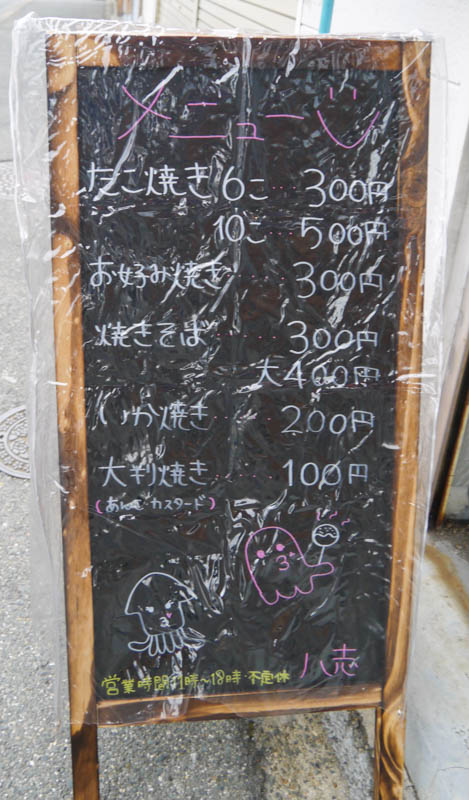 メニュー
たこ焼き 6こ…300円
10こ…500円
お好み焼き…300円
焼きそば…300円
大400円
いか焼き…200円
大判焼き…100円
(あんこ・カスタード)
営業時間:11時〜18時・不定休
八志